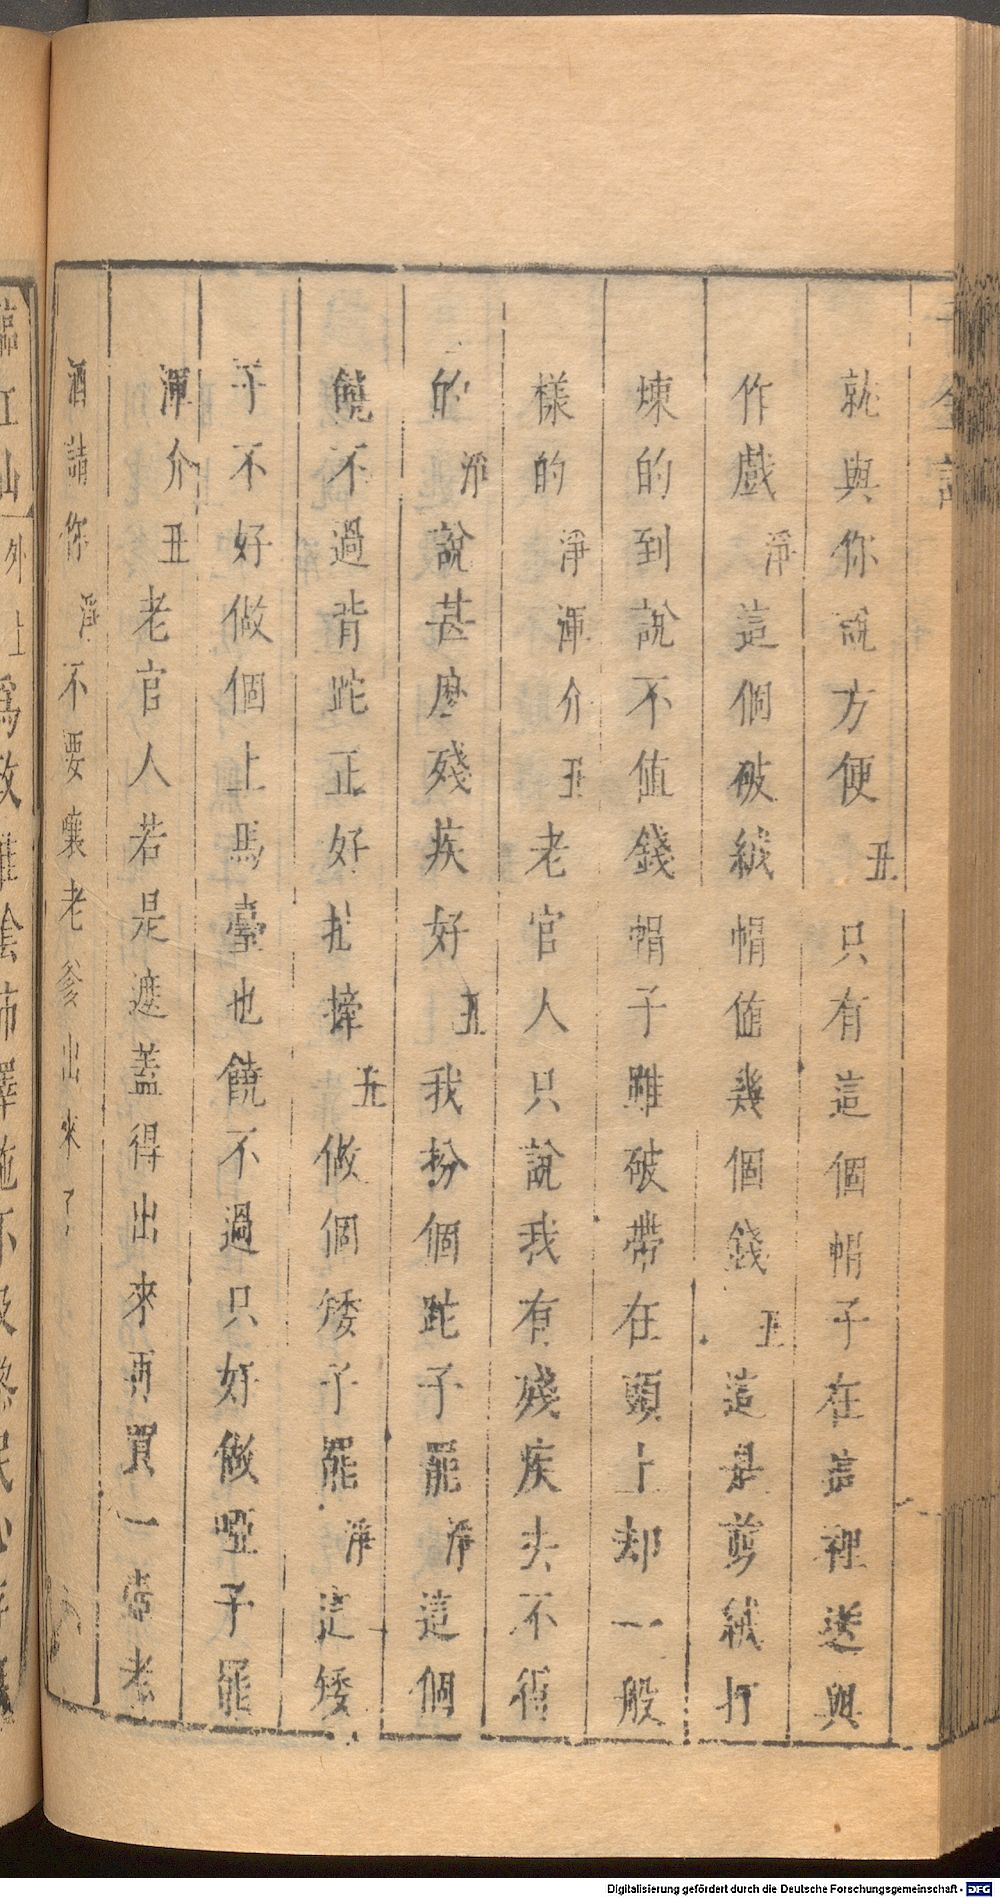 就與你說方便丑只有這個帽子在這裡送與
作戲淨這個破絨帽值幾個錢丑這是剪絨打
煉的到說不值錢帽子雖破帶在頭上却一般
樣的淨渾介丑老官人只說我有殘疾去不得
的淨說甚麽殘疾好丑我扮個跎子罷淨這個
饒不過背跎正好扎捧丑做個矮子罷淨這矮
子不好做個上馬臺也饒不過只好做啞子罷
渾介丑老官人若是遮蓋得出來再買一壺老
酒請你淨不要嚷老爹出來了
Digitalisierung gefördert durch die Deutsche Forschungsgemeinschaft - DFG